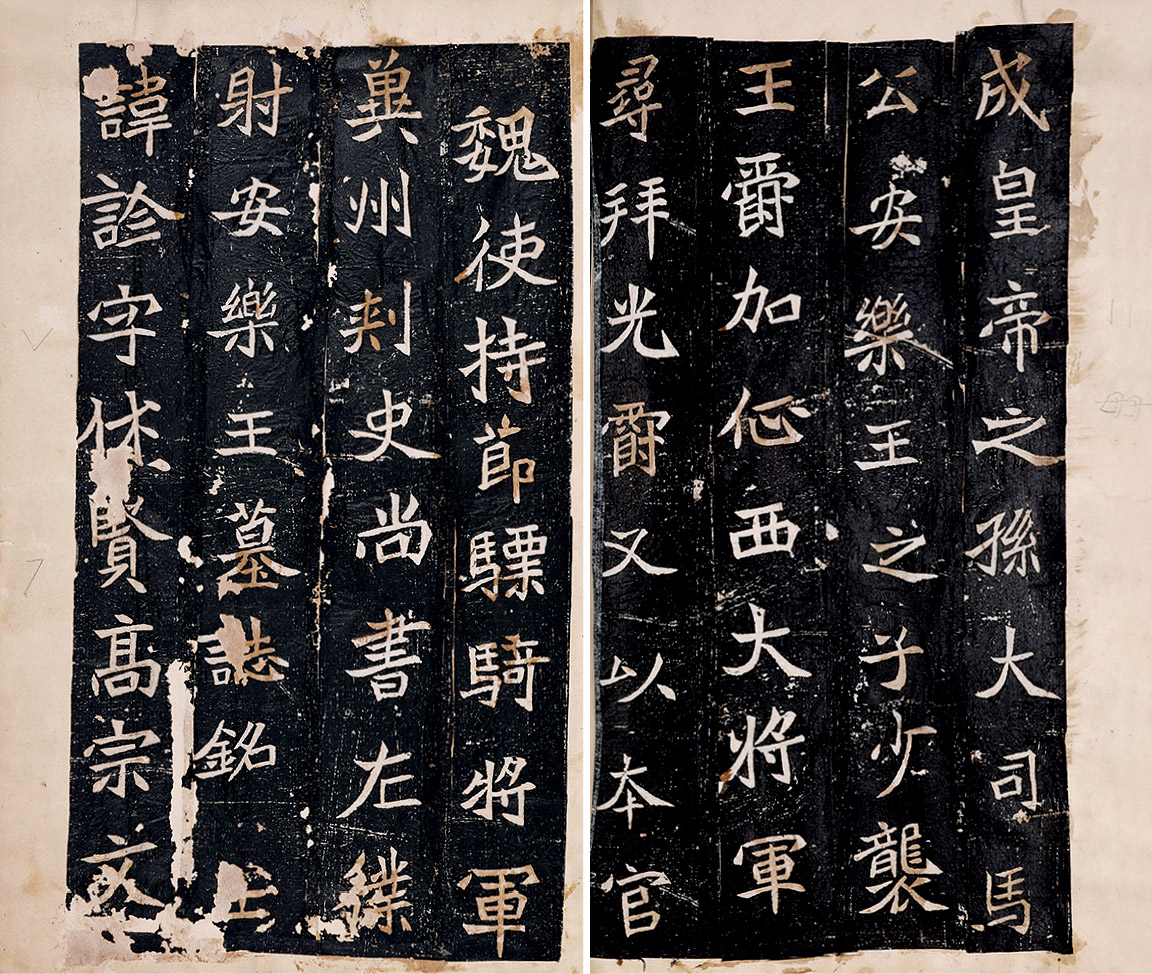 魏使持節驃騎將軍
冀州刾史尚書左僕
射安樂王墓誌銘王
諱詮字休賢高宗文
成皇帝之孫大司馬
公安樂王之子少襲
王爵加征西大將軍
尋拜光爵又以本官